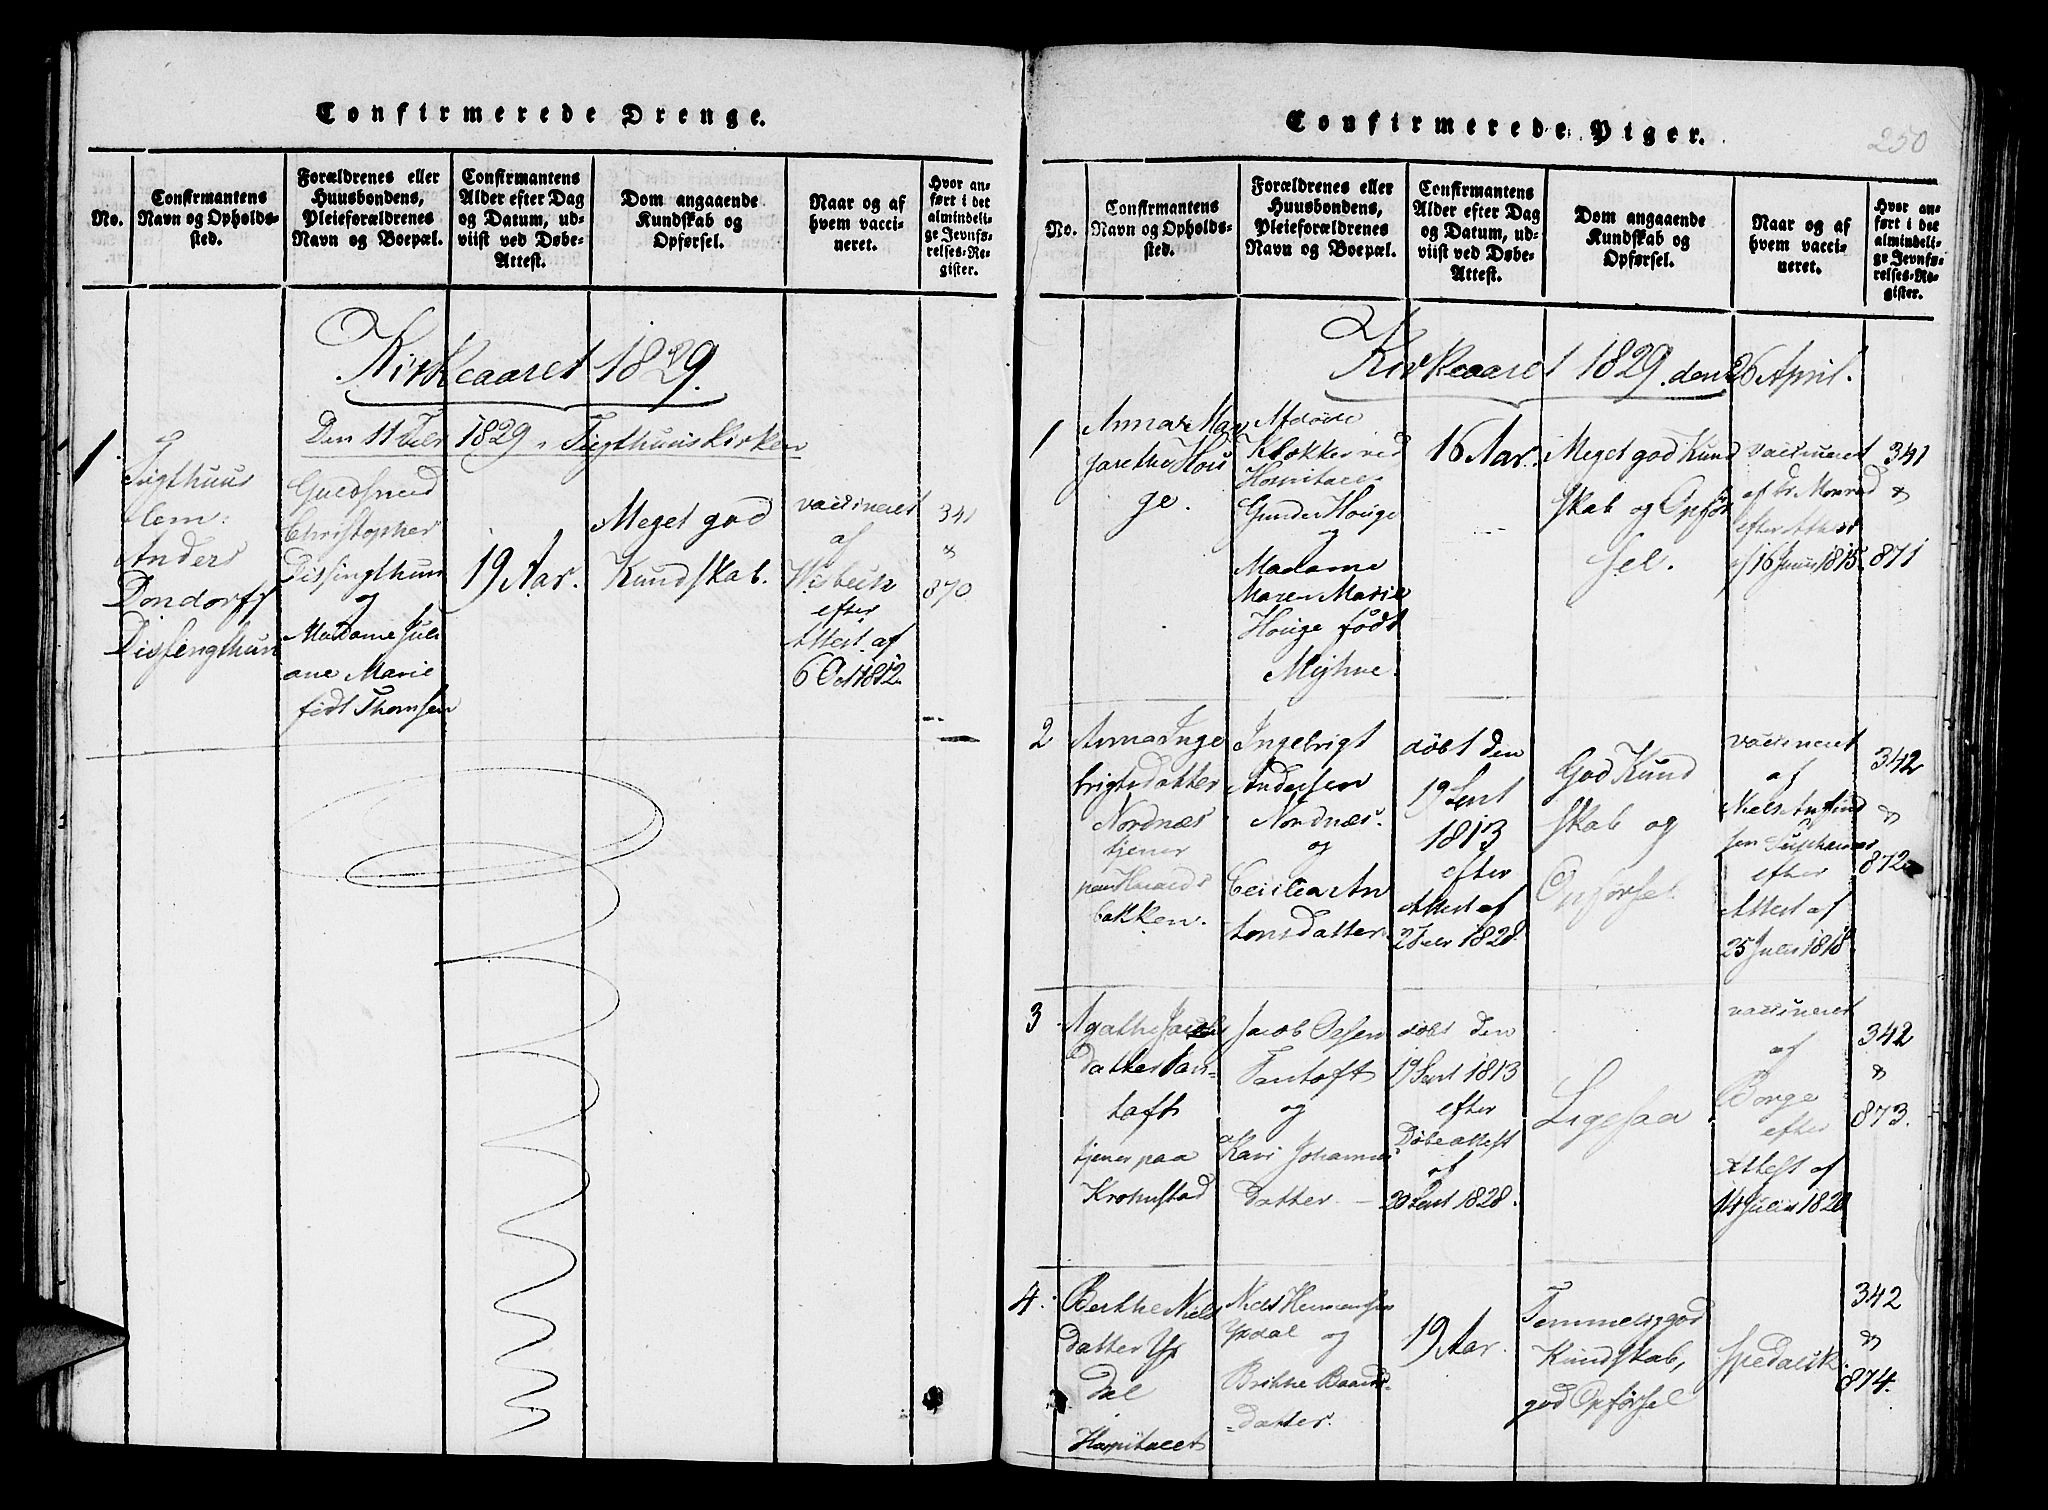 Confirmerede Drenge.
No.
Confirmantens
Navn og Opholds-
sted.
Forældrenes eller
Huusbondens,
Pleieforældrenes
Navn og Boepæl.
Confirmantens
Alder efter Dag
og Datum, ud-
viist ved Døbe-
Attest.
Dom angaaende
Kundskab og
Opførsel.
Naar og af
hvem vacci-
neret.
Hvor an-
ført i det
almindeli-
ge Jevnfø-
relses-Re-
gister.
Kirkeaaret 1829.
Den 11 Febr 1829 i Tugthuuskirken
1.
Tugthuus
lem:
Anders
Dondorff
Dissingthun
Guldsmed
Christopher
Dissingthun
og
Madame Juli
ane Marie
født Thomsen
19 Aar.
Meget god
Kundskab.
vaccineret
af
Wisbech
efter
Attest af
6 Oct 1812.
341
&
870
Confirmerede Piger.
250
No.
Confirmantens
Navn og Opholds-
sted.
Forældrenes eller
Huusbondens,
Pleieforældrenes
Navn og Boepæl.
Confirmantens
Alder efter Dag
og Datum, ud-
viist ved Døbe-
Attest.
Dom angaaende
Kundskab og
Opførsel.
Naar og af
hvem vacci-
neret.
Hvor an-
ført i det
almindeli-
ge Jevnfø-
relses-Re-
gister.
Kirkeaaret 1829. den 26 April.
1
Anna Mar
garethe Hou
ge.
Afdøde
Klokker ved
Hospitalet
Gunder Houge
og
Madame
Maren Marie
Houge født
16 Aar.
Meget god Kund
skab og Opfør
sel.
vaccineret
af Dr. Monrad
efter Attest
af 16 Junii 1815.
341
&
871
2
Anna Inge
brigtsdatter
Nordnæs
tjener
paa Hauards
bakken.
Ingebrigt
Andersen
Nordnæs.
og
Cecilia An
tonsdatter.
døbt den
19 Sept
1813
efter
Attest af
2 Febr 1828.
God Kund
skab og
Opførsel.
vaccineret
af
Niels Anfind
sen
efter
Attest af
25 Julii 1818.
342
&
872
3
Agathe Jacobs
datter Fan-
toft
tjener paa
Krohnstad
Jacob Olsen
Fantoft
og
Kari Johannes
datter
døbt den
19 Sept 1813
efter
Døbeattest
af
20 Sept 1828.
Ligesaa
vaccineret
af
Borge
efter
Attest af
14 Julii 1820
342
&
873.
4.
Berthe Niels
datter Yp
dal
i
Hospitalet
Niels Hermansen
Ypdal og
Brithe Baards-
datter.
19 Aar.
Temmelig god
Kundskab,
god Opførsel
spedalsk.
342
&
874.